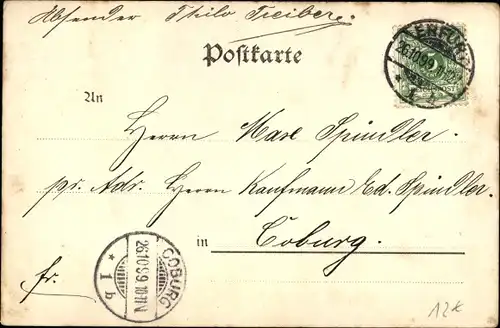 Absender Thilo Treiber.
Postkarte
ERFURT
26.10.99.
* 1
An
Herrn Karl Spindler.
pr. Adr. Herrn Kaufmann Ed. Spindler.
in Coburg.
fr.
COBURG
26.10.99. 10-11N
* 1 b
12k